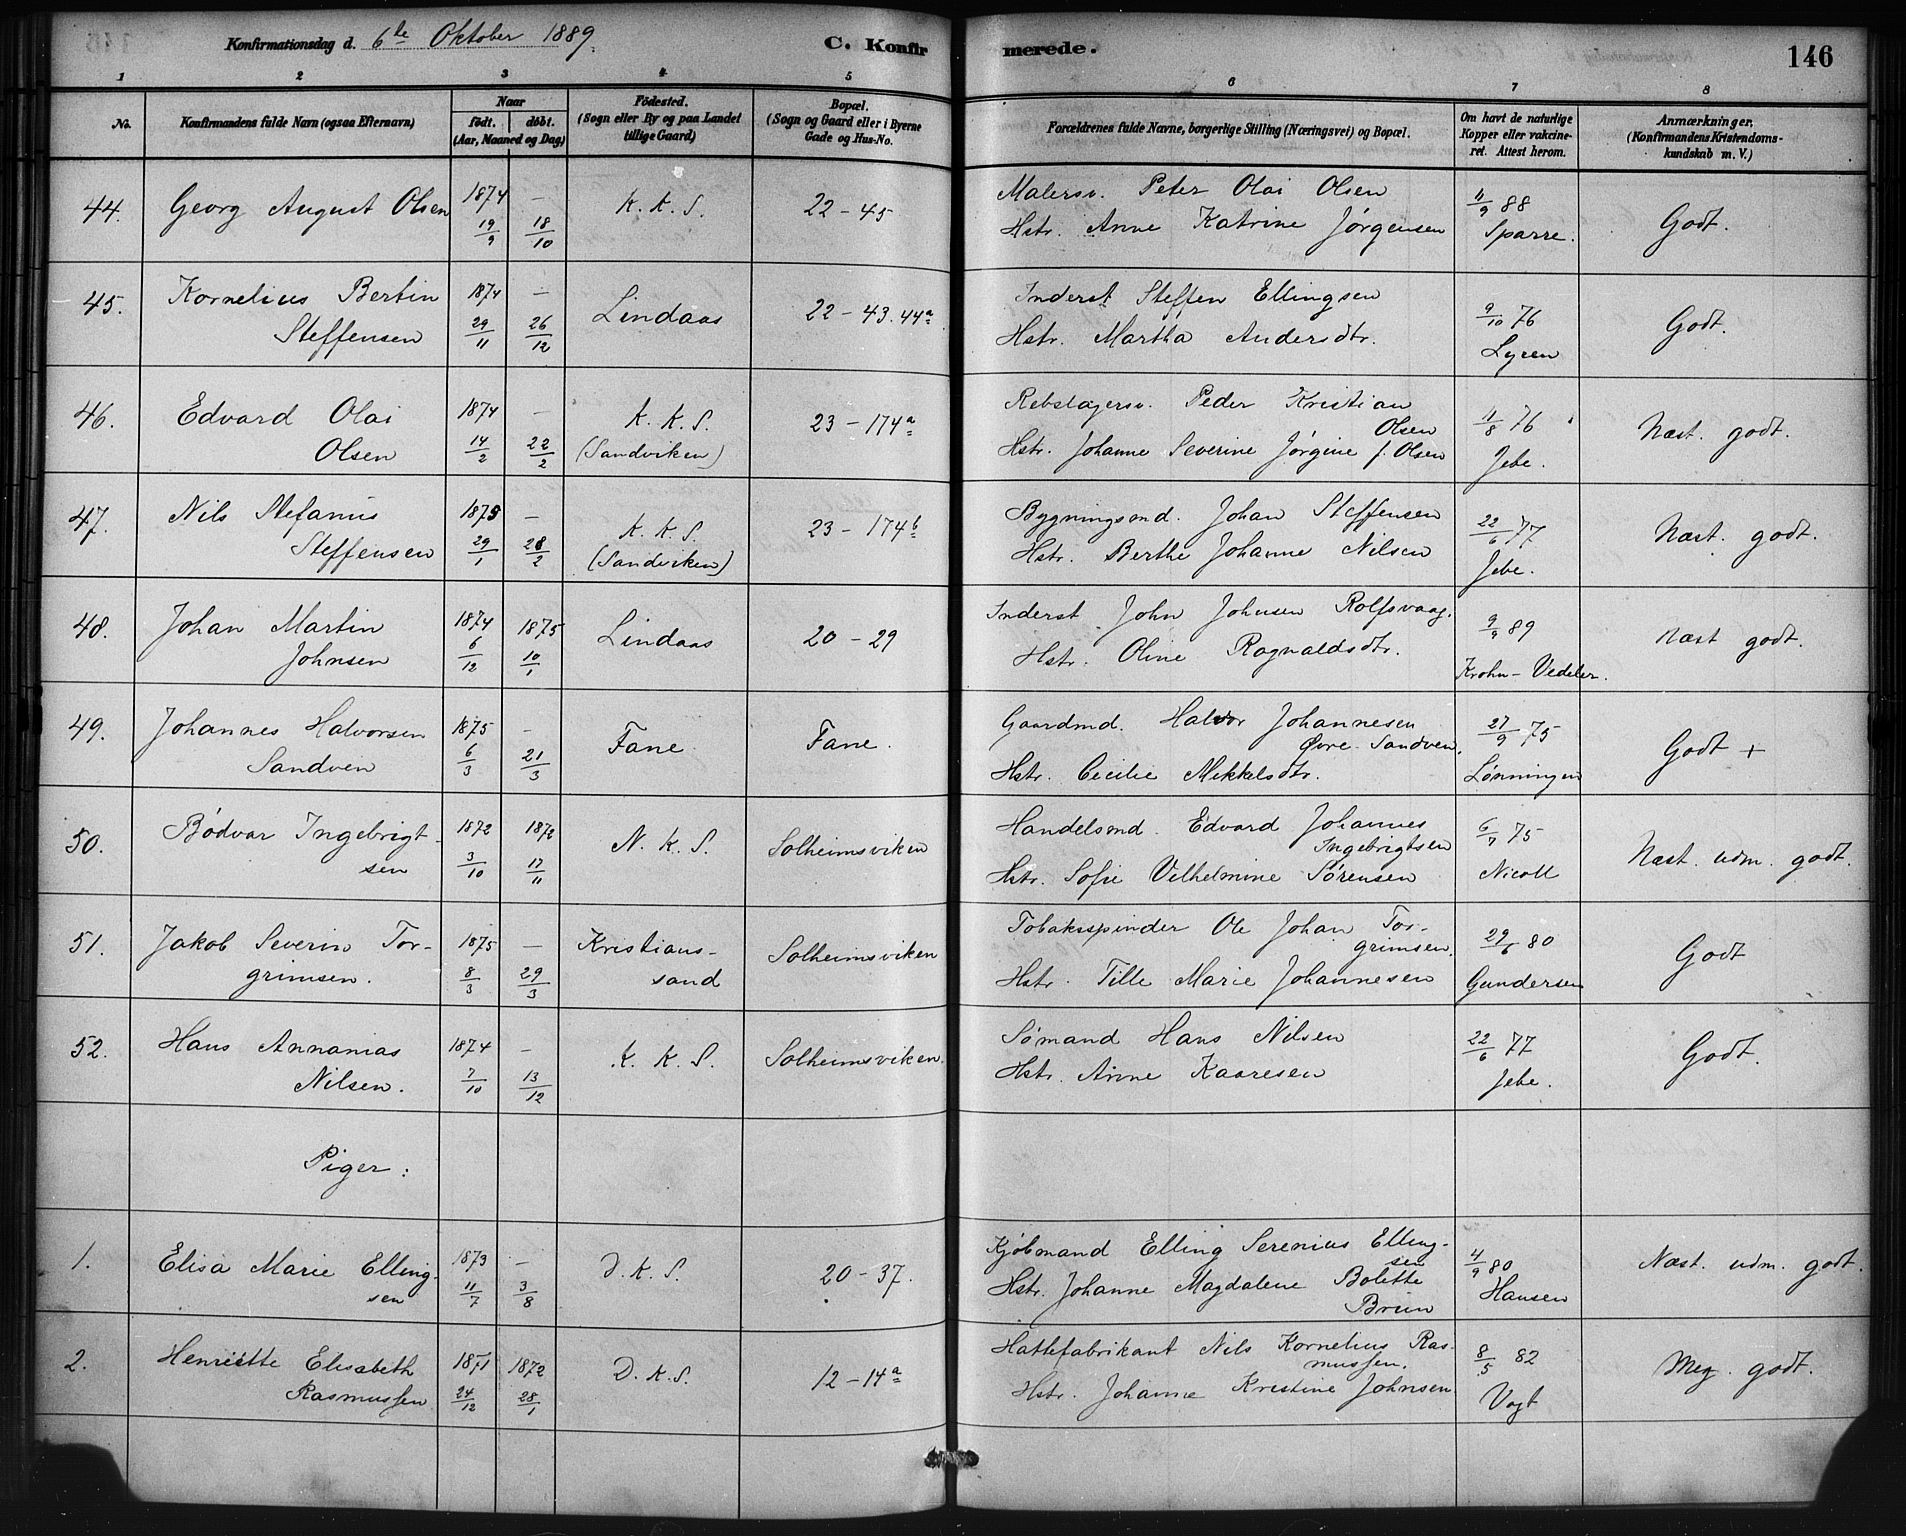 Konfirmationsdag d. 6te Oktober 1889.
C. Konfirmerede.
146
1 2 3 4 5 6 7 8
No.
Konfirmandens fulde Navn (ogsaa Efternavn)
Naar
født. døbt.
(Aar, Maaned og Dag)
Fødested.
(Sogn eller By og paa Landet
tillige Gaard)
Bopæl.
(Sogn og Gaard eller i Byerne
Gade og Hus-No.
Forældrenes fulde Navne, borgerlige Stilling (Næringsvei) og Bopæl.
Om havt de naturlige
Kopper eller vakcine-
ret. Attest herom.
Anmærkninger.
(Konfirmandens Kristendoms-
kundskab m. V.)
44. Georg August Olsen 1874 19/9 — 18/10 K. K. S. 22 – 45
Malersv. Peter Olai Olsen
Hstr. Anne Katrine Jørgensen
11/9 88
Sparre.
Godt.
45. Kornelius Bertin
Steffensen
1874 29/11 — 26/12 Lindaas 22 – 43.44a
Inderst Steffen Ellingsen
Hstr. Martha Andersdtr.
9/10 76
Lyren
Godt.
46. Edvard Olai
Olsen
1874 14/2 — 22/2 K. K. S.
(Sandviken)
23 – 174a
Rebslagersv. Peder Kristian
Olsen
Hstr. Johanne Severine Jørgine f. Olsen
11/8 76
Jebe.
Næst. godt.
47. Nils Stefanus
Steffensen
1875 29/1 — 28/2 K. K. S.
(Sandviken)
23 – 174b
Bygningsmd. Johan Steffensen
Hstr. Berthe Johanne Nilsen
22/6 77
Jebe.
Næst. godt.
48. Johan Martin
Johnsen
1874 6/12 1875 10/1 Lindaas 20 – 29
Inderst John Johnsen Rolfsvaag.
Hstr. Oline Ragnaldsdtr.
9/9 89
Krohn – Vedeler.
Næst godt.
49. Johannes Halvorsen
Sandven
1875 6/3 — 21/3 Fane Fane.
Gaardmd. Halvor Johannesen
Øvre Sandven.
Hstr. Cecilie Mikkelsdtr.
27/9 75
Lønningen
Godt +
50. Bødvar Ingebrigt-
sen
1872 3/10 1872 17/11 N. K. S. Solheimsviken
Handelsmd. Edvard Johannes
Ingebrigtsen
Hstr. Sofie Vilhelmine Sørensen
6/7 75
Nicoll
Næst. udm. godt.
51. Jakob Severin Tor-
grimsen.
1875 8/3 — 29/3 Kristians-
sand
Solheimsviken
Tobaksspinder Ole Johan Tor-
grimsen.
Hstr. Tille Marie Johannesen
29/6 80
Gundersen
Godt
52. Hans Annanias
Nilsen.
1874 7/10 — 13/12 K. K. S. Solheimsviken.
Sømand Hans Nilsen
Hstr. Anne Kaaresen
22/6 77
Jebe.
Godt.
Piger:
1. Elisa Marie Elling-
sen
1873 11/7 — 3/8 D. K. S. 20 – 37.
Kjøbmand Elling Serenius Elling-
sen
Hstr. Johanne Magdalene Bolette
Brun
4/9 80
Hansen
Næst. udm. godt.
2. Henriette Elisabeth
Rasmussen
1871 24/12 1872 28/1 D. K. S. 12 – 14a
Hattefabrikant Nils Kornelius Ras-
mussen.
Hstr. Johanne Kristine Johnsen.
8/5 82
Vogt
Meg. godt.